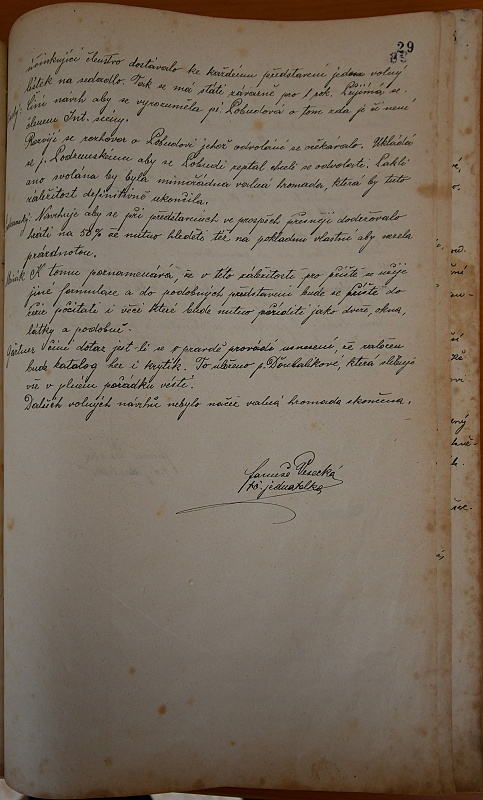 29
účinkující členstvo dostávalo ke každému představení jeden volný
lístek na sedadlo. Tak se má státi závazně pro 1 rok. Přijímá se.
líní návrh aby se vyrozuměla pí Lobudová o tom zda je či není
členem Int. scény.
Rozvíjí se rozhovor o Lobudovi jehož odvolání se očekávalo. Ukládá
se p. aby se Lobudi zeptal chce-li se odvolati.
ano svolána by byla mimořádná valná hromada, která by tuto
záležitost definitivně ukončila.
Navrhuje aby se při představeních ve prospěch docilovalo
hráti na 50% že nutno hleděti též na pokladnu vlastní aby nezela
prázdnotou.
K tomu poznamenává, že v této záležitosti pro příště se užije
jiné formulace a do podobných představení bude se příště do
režie počítati i věci které bude nutno poříditi jako dveře, okna,
látky a podobně.
Gärtner Činí dotaz jest-li se o pravdě provádí usnesení, že založen
bude katalog her i kritik. To uloženo p. Doubalíkové, která slibuje
vše v plném pořádku vésti.
Dalších volných návrhů nebylo načež valná hromada skončena.
jednatelka